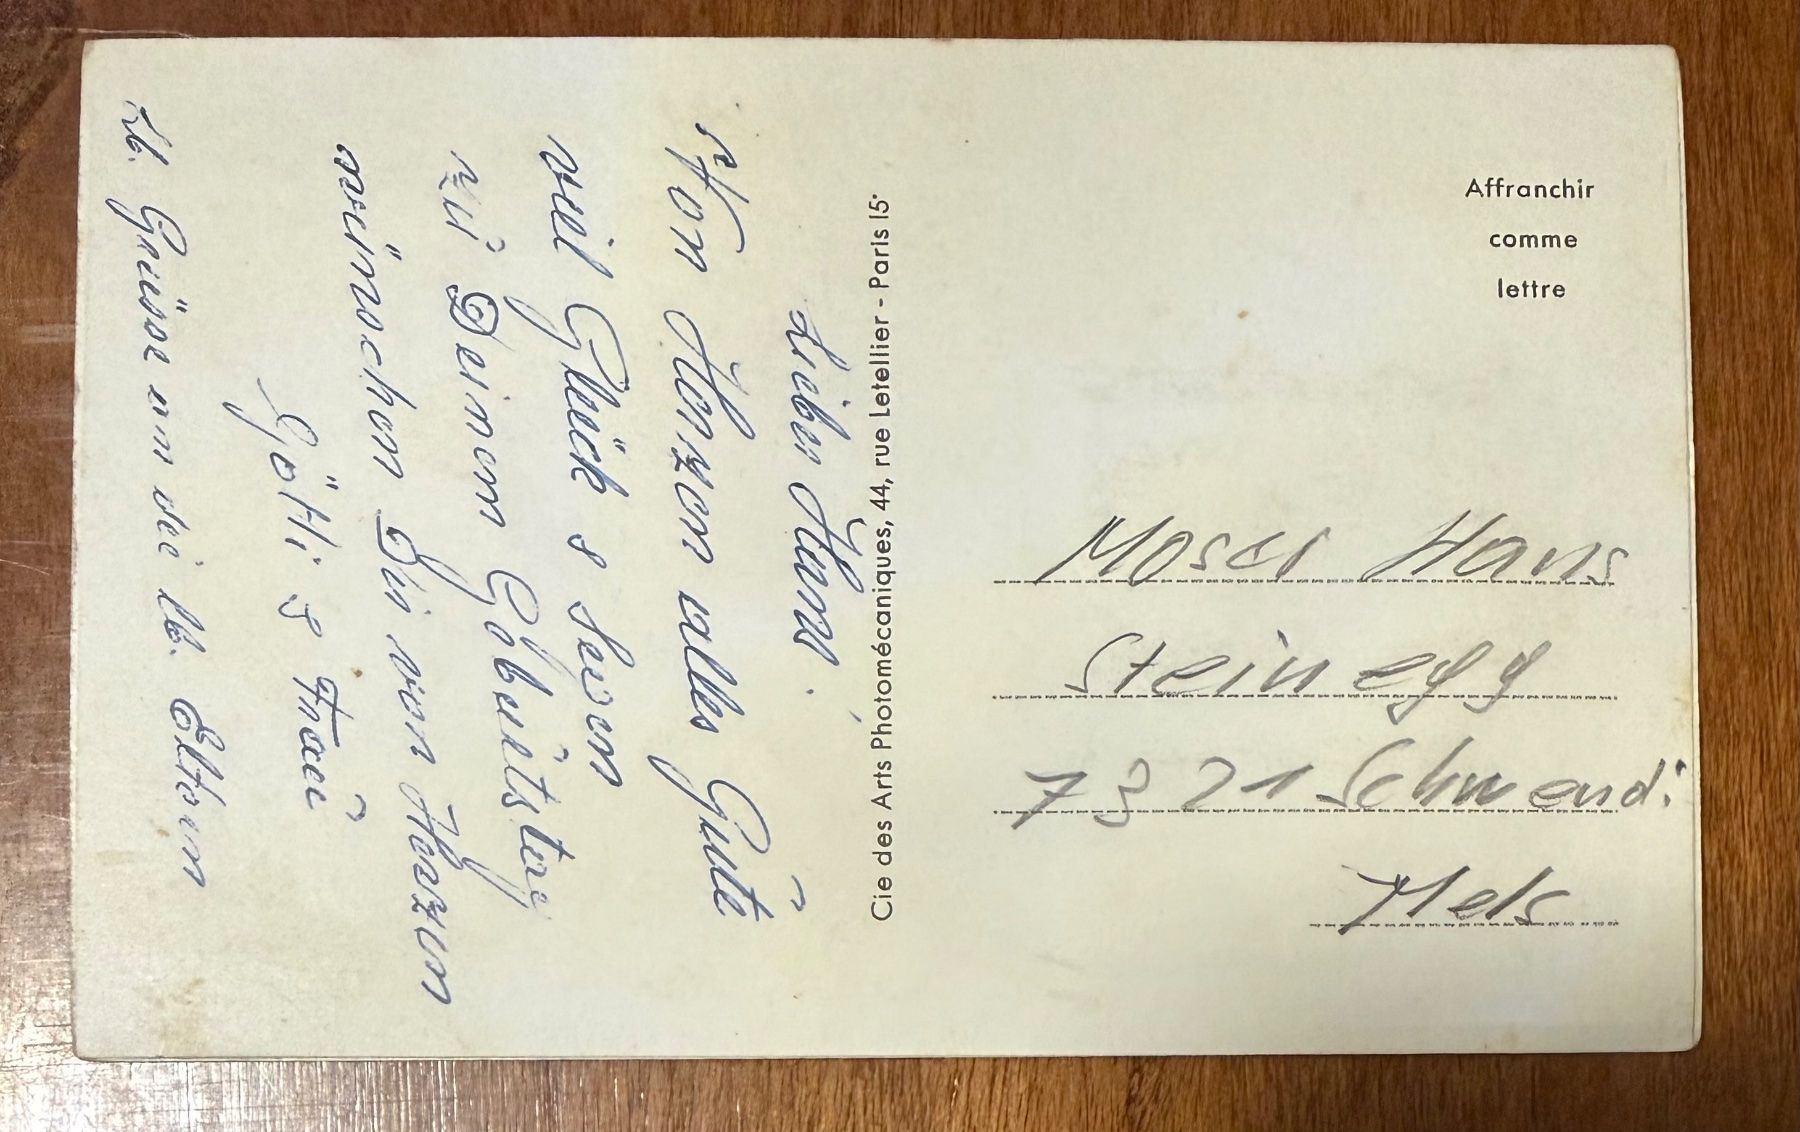 Lieber Hans.
Von Herzen alles Gute
viel Glück & Segen
zu Deinem Geburtstag
wünschen Dir von Herzen
Götti & Frau
Lb. Grüsse an die lb. Eltern
Cie des Arts Photomécaniques, 44, rue Letellier - Paris 15ᵉ
Affranchir
comme
lettre
Moser Hans
Steinegg
7321 Schwendi
Mels